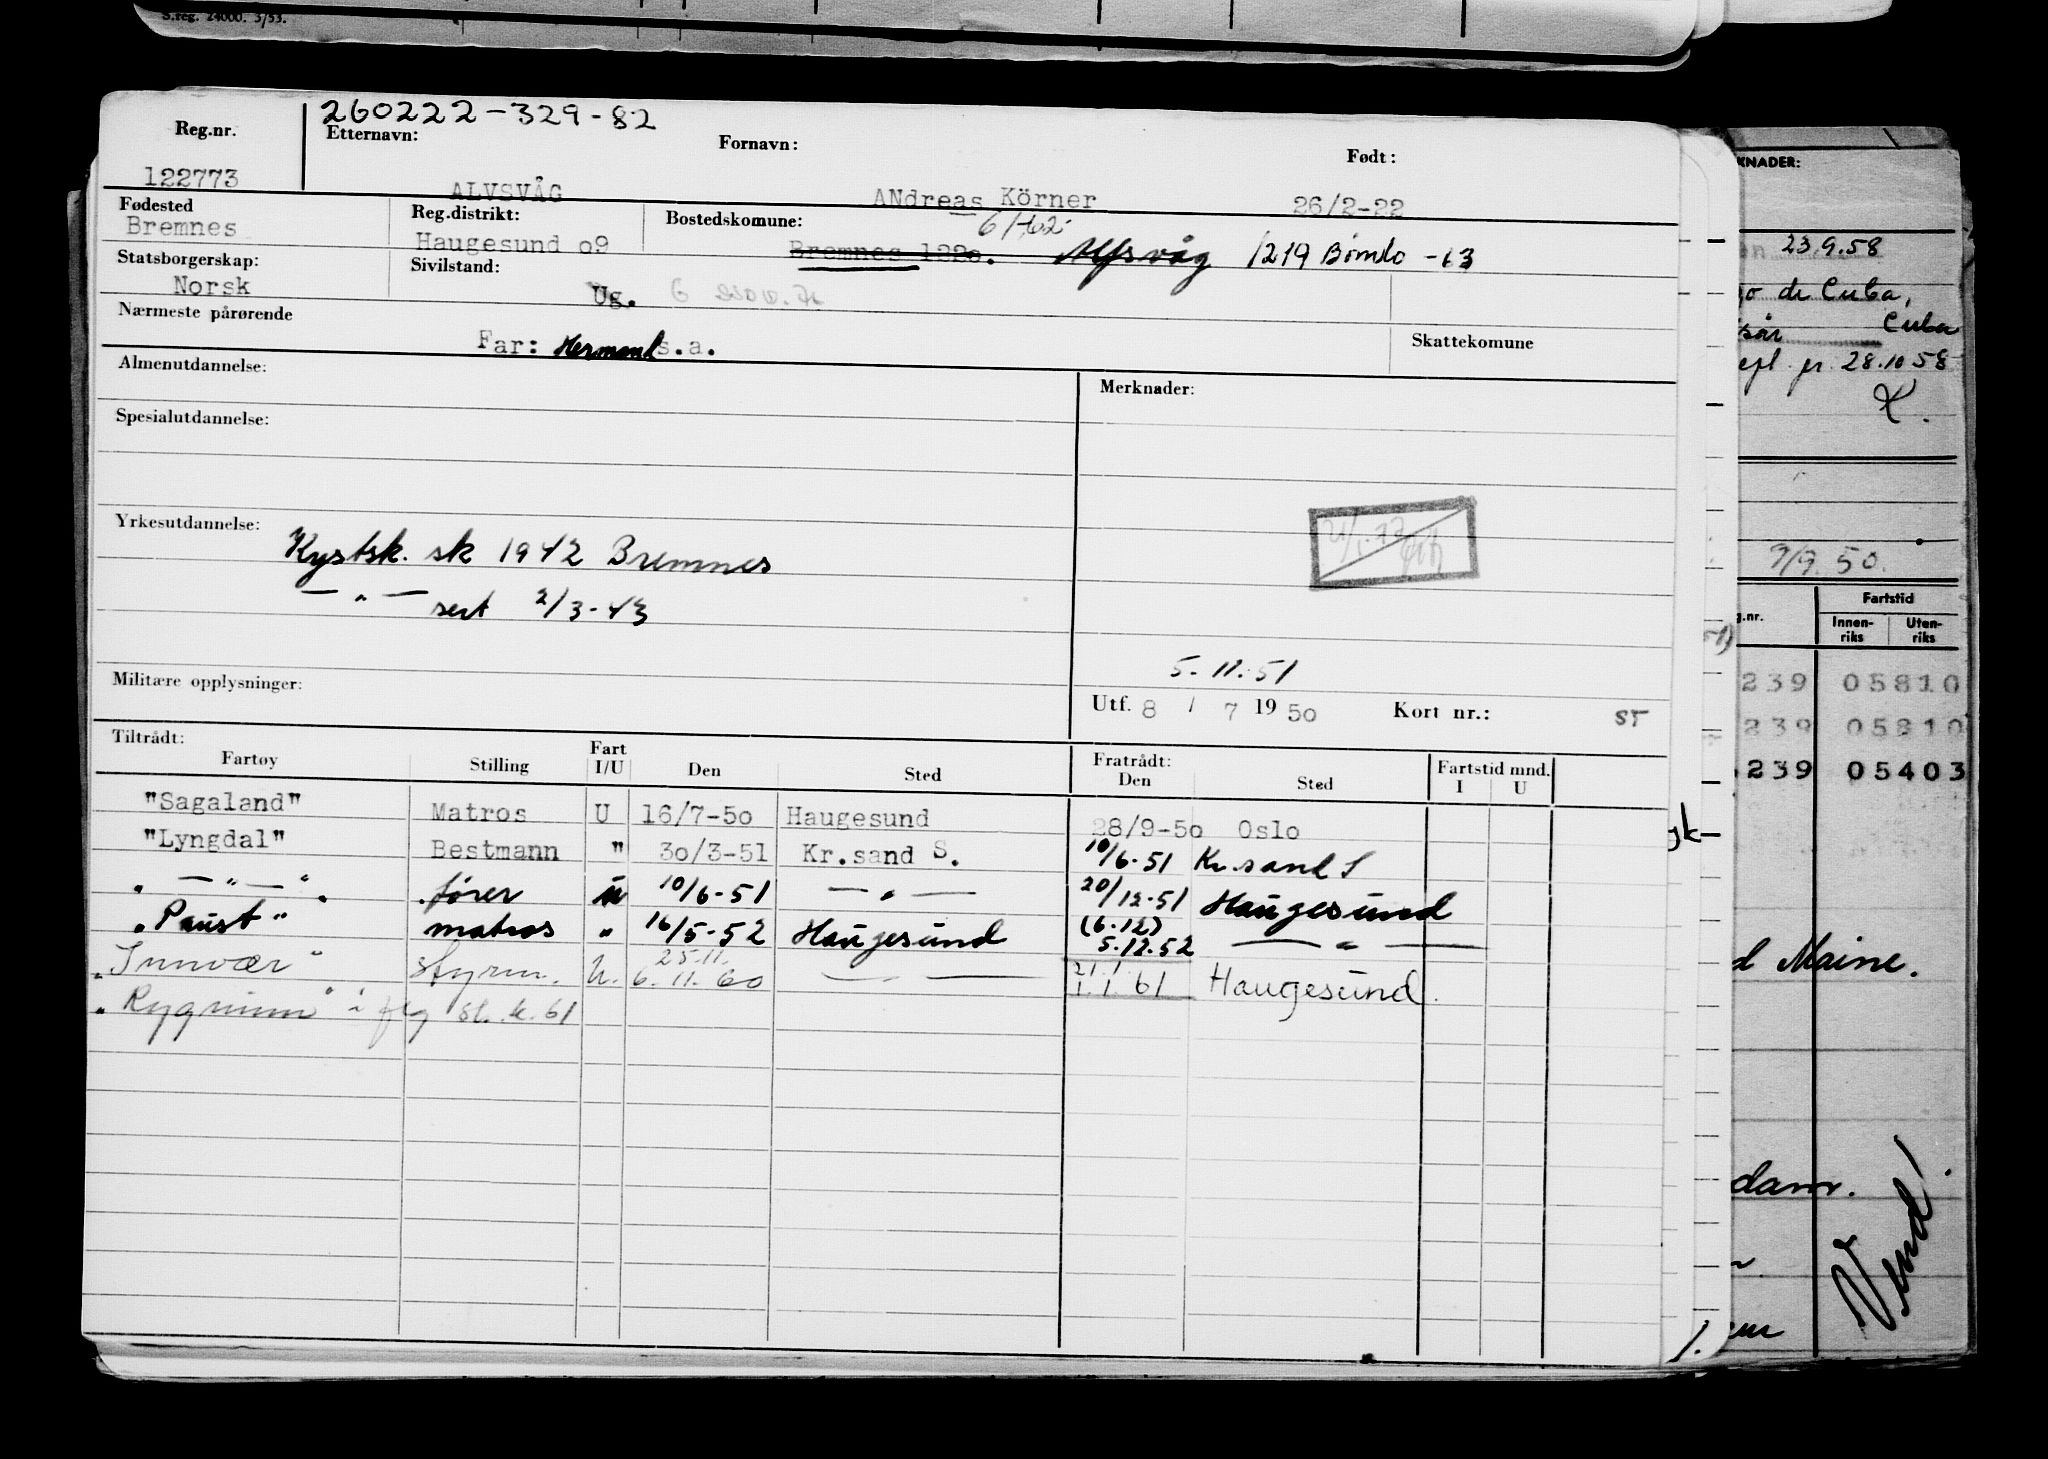 S.reg. 24000. 3/53.
260222-329-82
Reg.nr. Etternavn: Fornavn: Født:
122773 ALVSVÅG ANdreas Körner 26/2-22
Fødested Reg.distrikt: Bostedskomune:
Bremnes Haugesund o9 Bremnes 122o. Alfsvåg 1219 Bømlo -63
Statsborgerskap: Sivilstand:
Norsk Ug.
Nærmeste pårørende Skattekomune
Far: Hermand s.a.
Almenutdannelse: Merknader:
Spesialutdannelse:
Yrkesutdannelse:
Kystsk. sk 1942 Bremnes
— " — sert 2/3-43
5.11.51
Militære opplysninger: Utf. 8 / 7 19 50 Kort nr.: ST
Tiltrådt: Fratrådt:
Fartøy Stilling Fart I/U Den Sted Den Sted Fartstid mnd. I U
"Sagaland" Matros U 16/7-5o Haugesund 28/9-5o Oslo
"Lyngdal" Bestmann " 3o/3-51 Kr.sand S. 10/6-51 Kr.sand S
" — " — " fører u 10/6-51 — " — 20/12-51 Haugesund
"Paust" matros " 16/5-52 Haugesund (6.12) 5.12.52 — " —
"Innvær" styrm. U. 25.11. 6.11.60 — " — 21.1. 1.1.61 Haugesund.
KNADER:
23.9.58
de Cuba,
Cuba
28.10 58
9/9.50.
g.nr. Fartstid
Innen-riks Uten-riks
239 05810
239 05810
239 05403
Maine.
dam.
Vend!